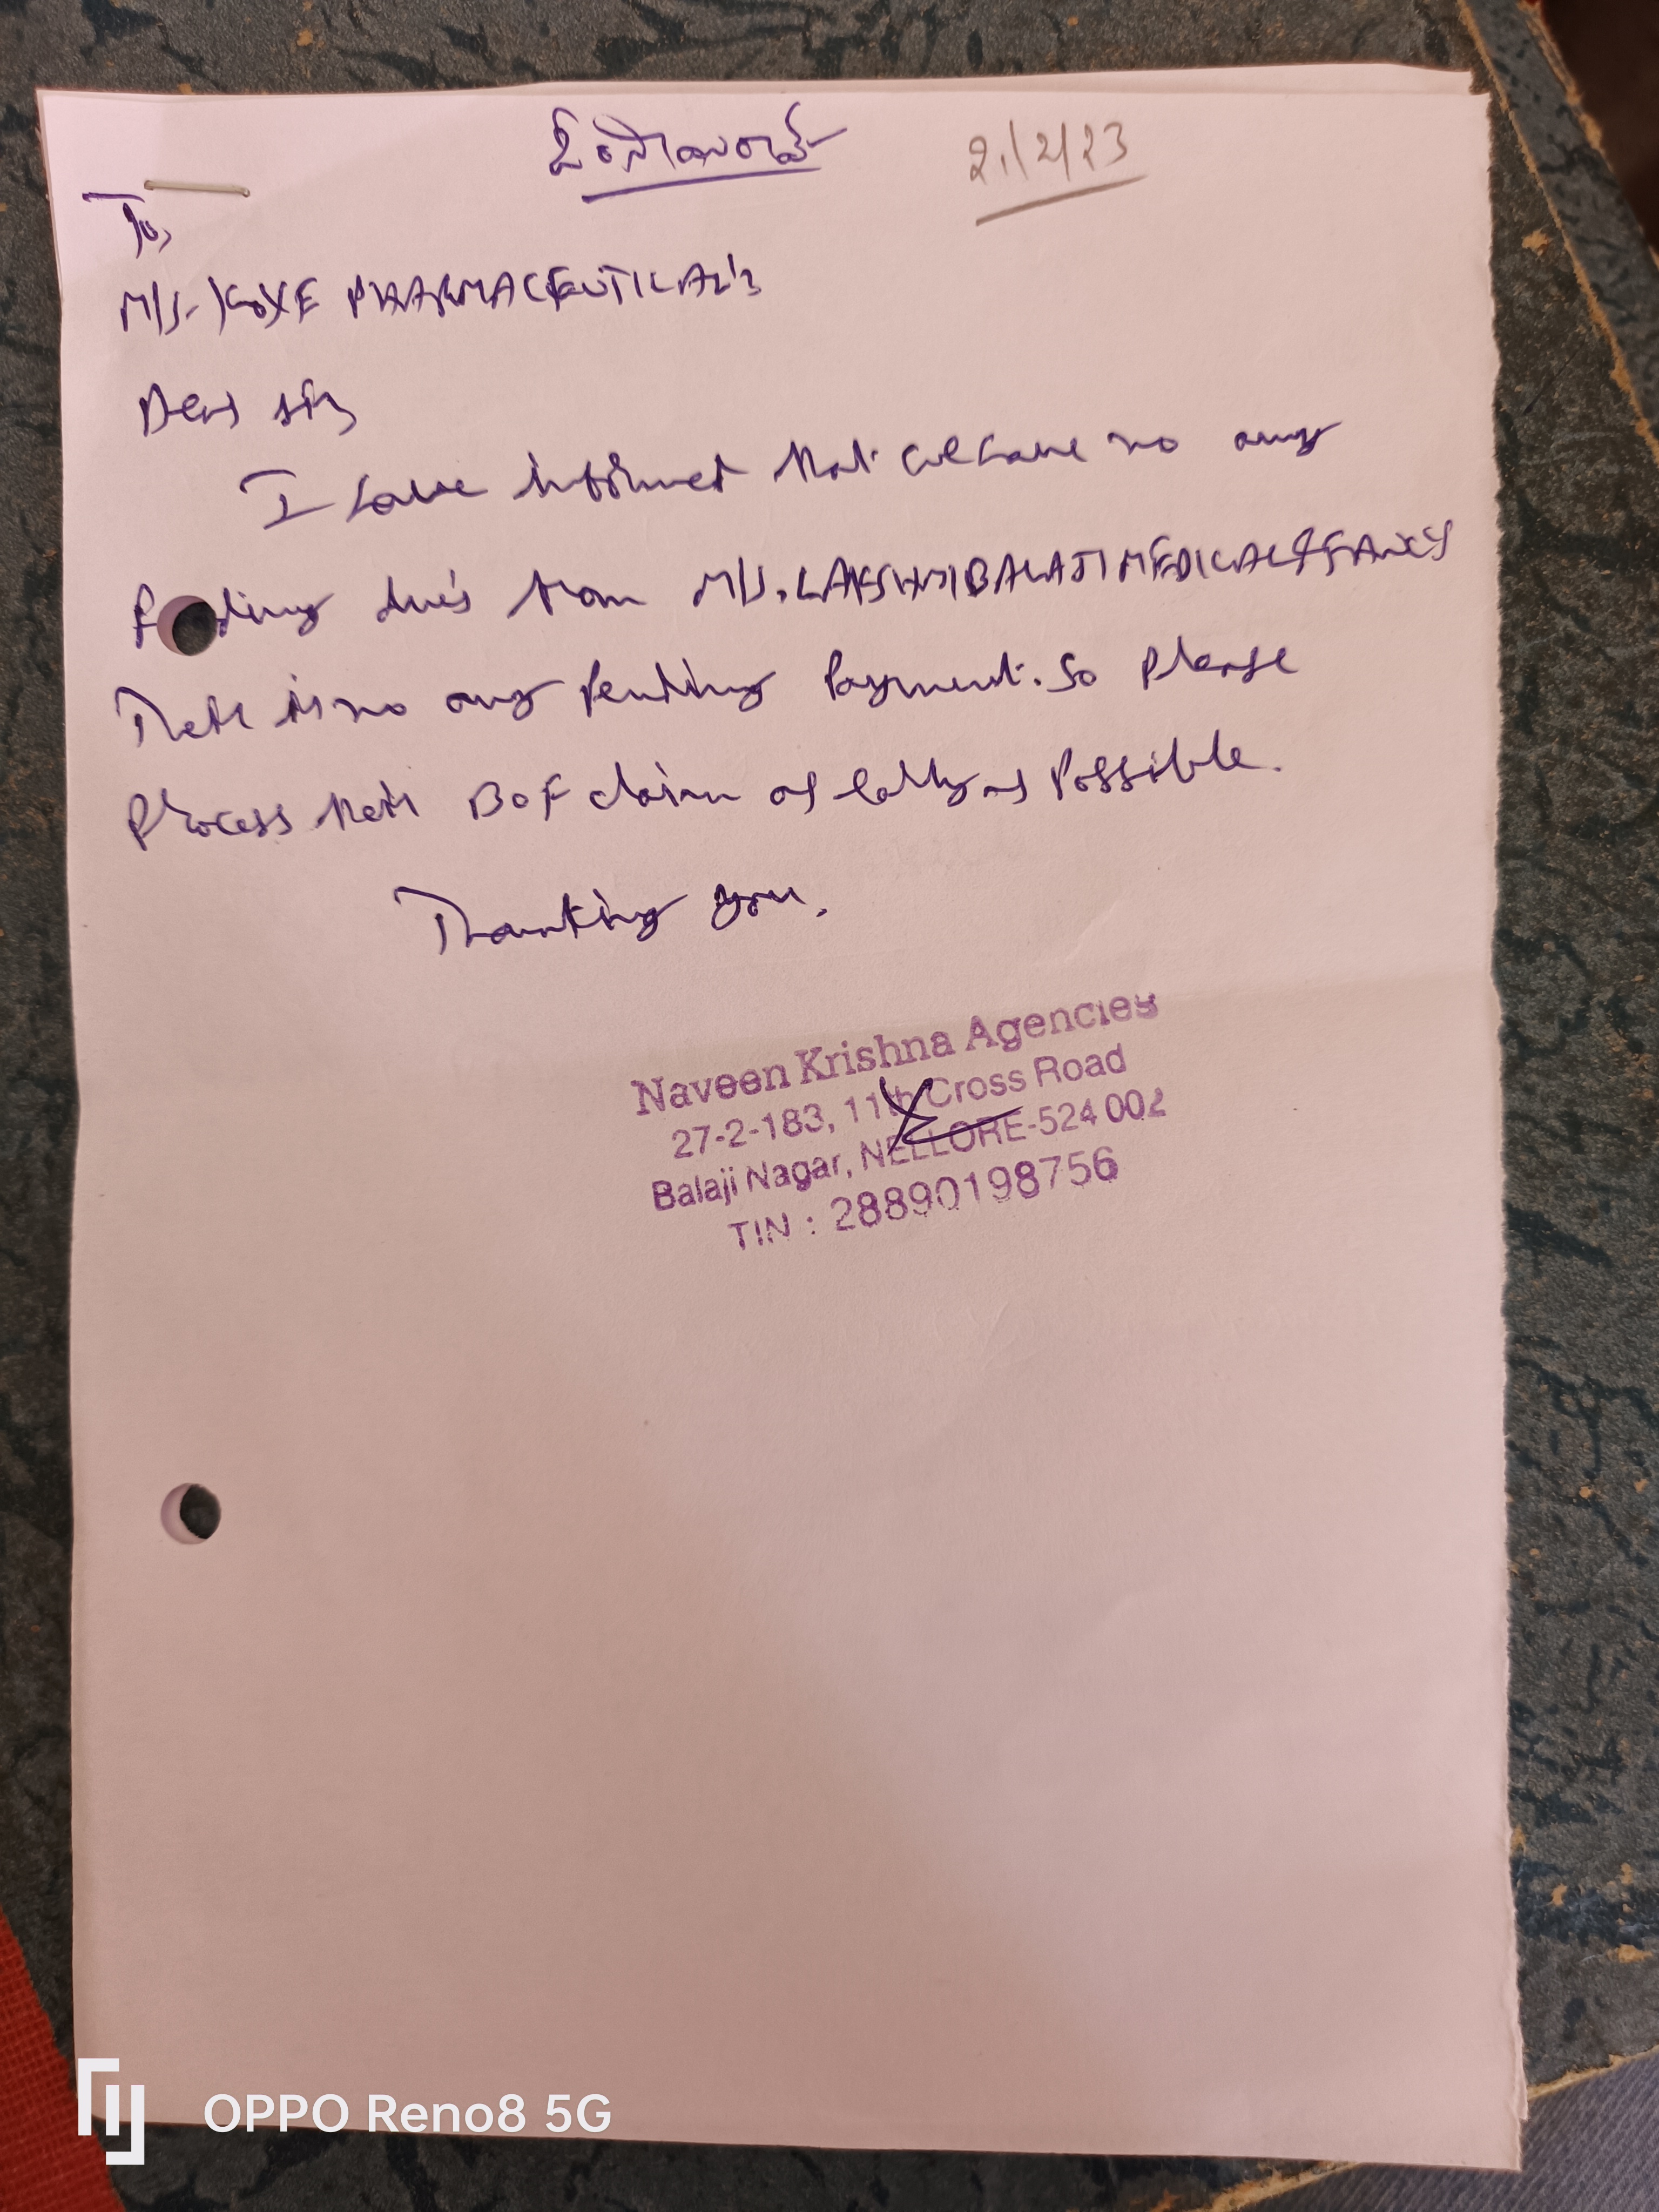 ఓం సాయిరామ్
21/2/23
To,
M/s. KOYE PHARMACEUTICAL's
Dear sir,
I have informed that we have no any
Pending due's from M/s. LAKSHMI BALAJI MEDICAL & FANCY
There is no any pending payment. So please
Process their BOF claim as early as Possible.
Thanking you.
Naveen Krishna Agencies
27-2-183, 11th Cross Road
Balaji Nagar, NELLORE-524 002
TIN : 28890198756
OPPO Reno8 5G